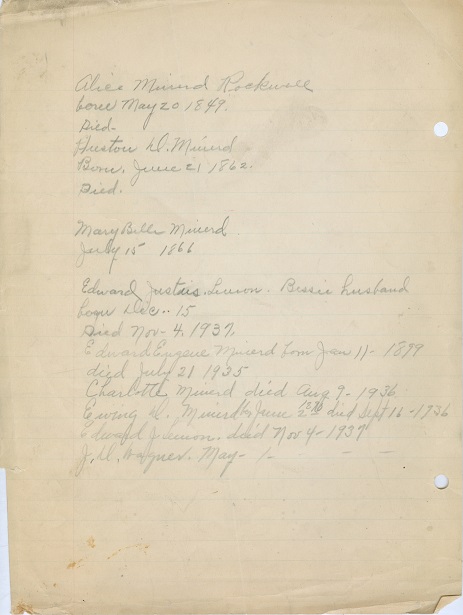 Alice Minerd Rockwell
born May 20 1849.
Died-
D. Minerd
Born, June 21 1862.
Died.
Mary Belle Minerd
July 15 1866
Edward Justais Lemon. Bessie husband
born Dec.. 15
Died Nov- 4, 1937
Edward Eugene Minerd born Jan 11- 1899
died July 21 1935
Charlotte Minerd died Aug 9- 1936
Ewing D. Minerd June died Sept 16-1936
Edward J Lemon. died Nov 4-1937
J. D. Wagner. May- 1-